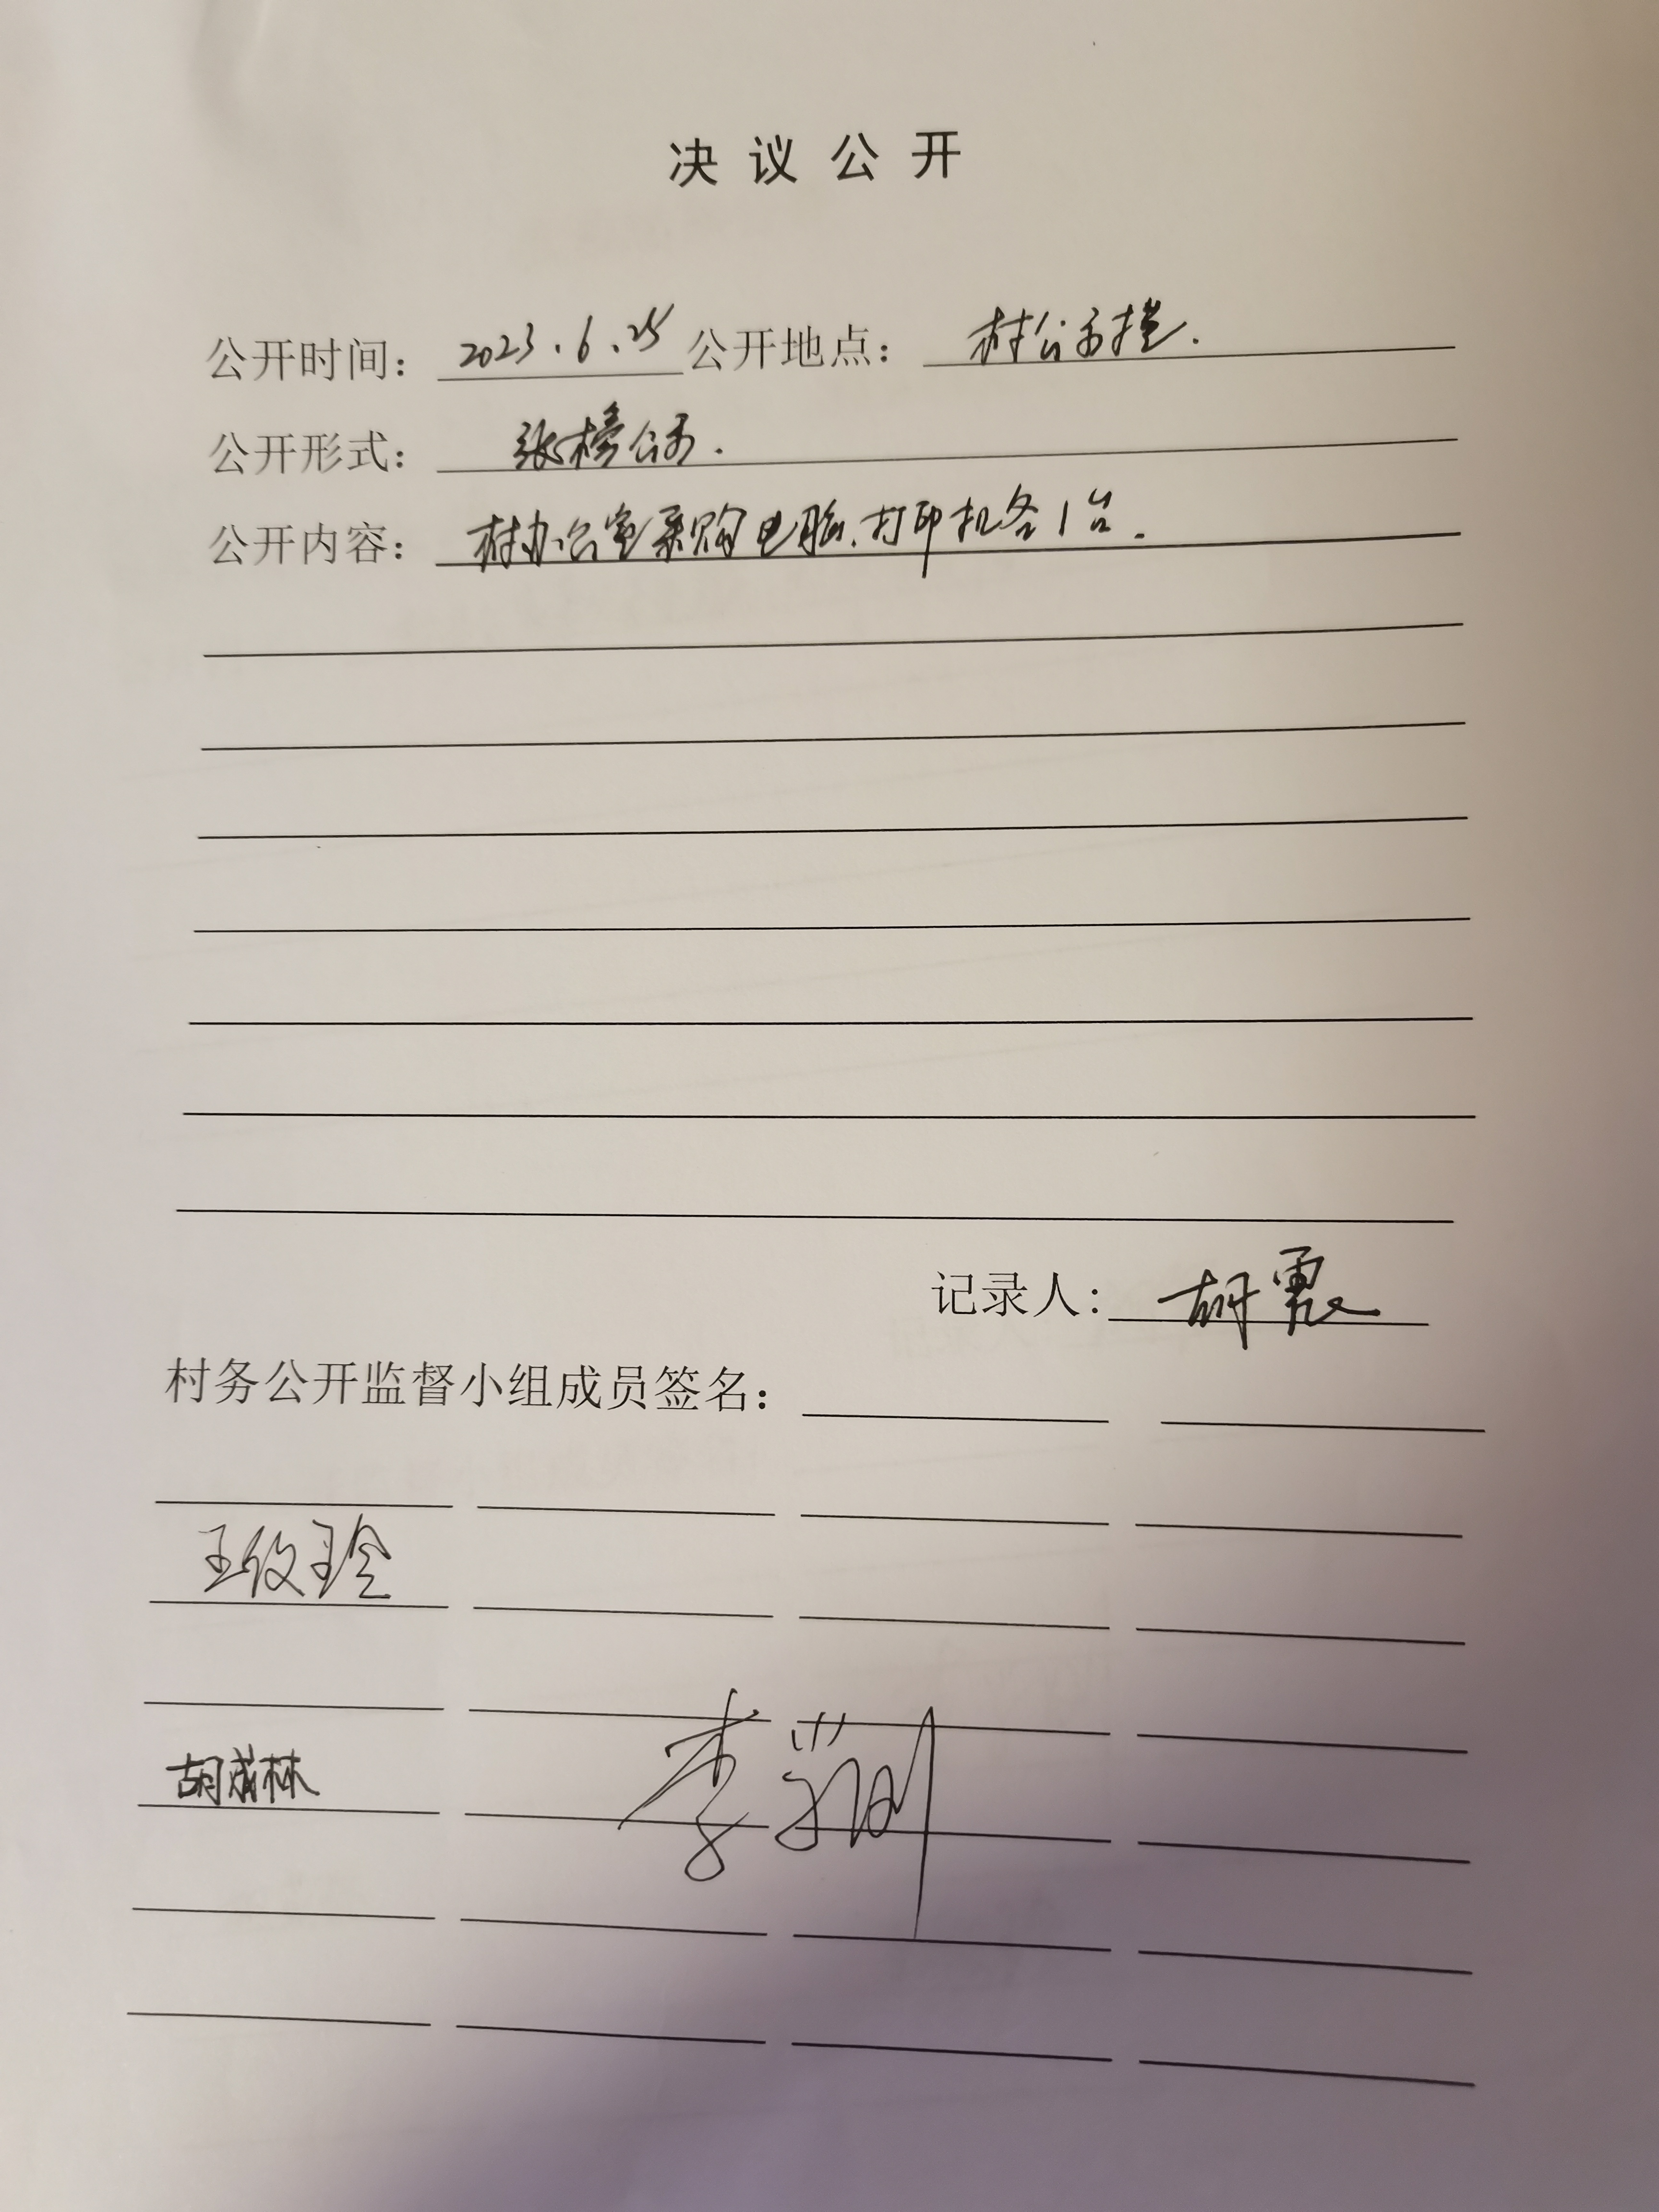 决议公开
公开时间：2023.6.25 公开地点：村公示栏.
公开形式：张榜公示.
公开内容：村办公室采购电脑、打印机各1台.
记录人：胡霞
村务公开监督小组成员签名：
王玲
胡成林
李